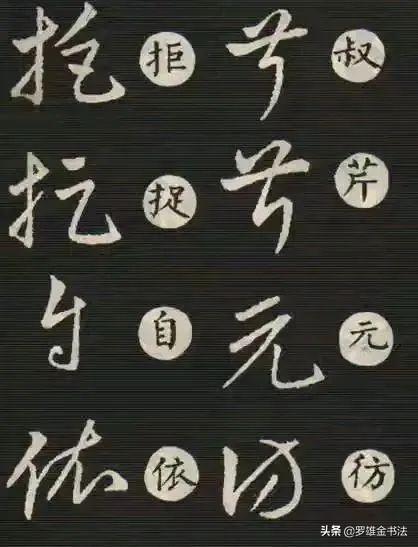 拒 叔
捉 芹
自 元
依 彷
头条 @罗雄金书法